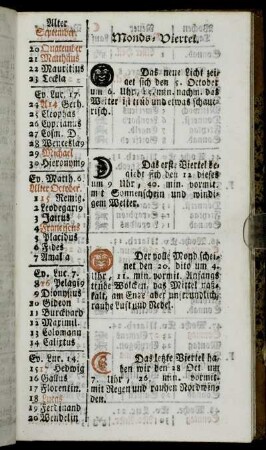 Alter
September.
20 Quatember
21 Matthäus
22 Mauritius
23 Tecla
Ev. Luc. 17.
24 A14 Gerh.
25 Cleophas
26 Cyprianus
27 Cosm. D
28 Wenzeslay
29 Michael
30 Hieronymg
Ev. Matth. 6.
Alter October.
1 15 Remig.
2 Leodegarig
3 Jairus
4 Franciscus
5 Placidus
6 Fides
7 Amalia
Ev. Luc. 7.
8 16 Pelagig
9 Dionysius
10 Gideon
11 Burckhard
12 Maximil.
13 Colomann
14 Calixtus
Ev. Luc. 14.
15 17 Hedwig
16 Gallus
17 Florentin.
18 Lucas
19 Ferdinand
20 Wendelin
Monds-Viertel.
Das neue Licht zei-
get sich den 5. October
um 6. Uhr, 15. min. nachm. das
Wetter ist trüb und etwas schaue-
risch.
Das erste Viertel be-
giebt sich den 12 dieses
um 9 Uhr, 40. min. vormit.
mit Sonnenschein und windi-
gem Wetter.
Der volle Mond schei-
net den 20. dito um 4.
Uhr, 11. min. vormit. Anfangs
trübe Wolcken, das Mittel naß-
kalt, am Ende aber unfreundlich,
rauhe Luft und Nebel.
Das letzte Viertel ha-
ben wir den 28 Oct um
7. Uhr, 26, min. vormit.
mit Regen und rauhen Nordwin-
den.